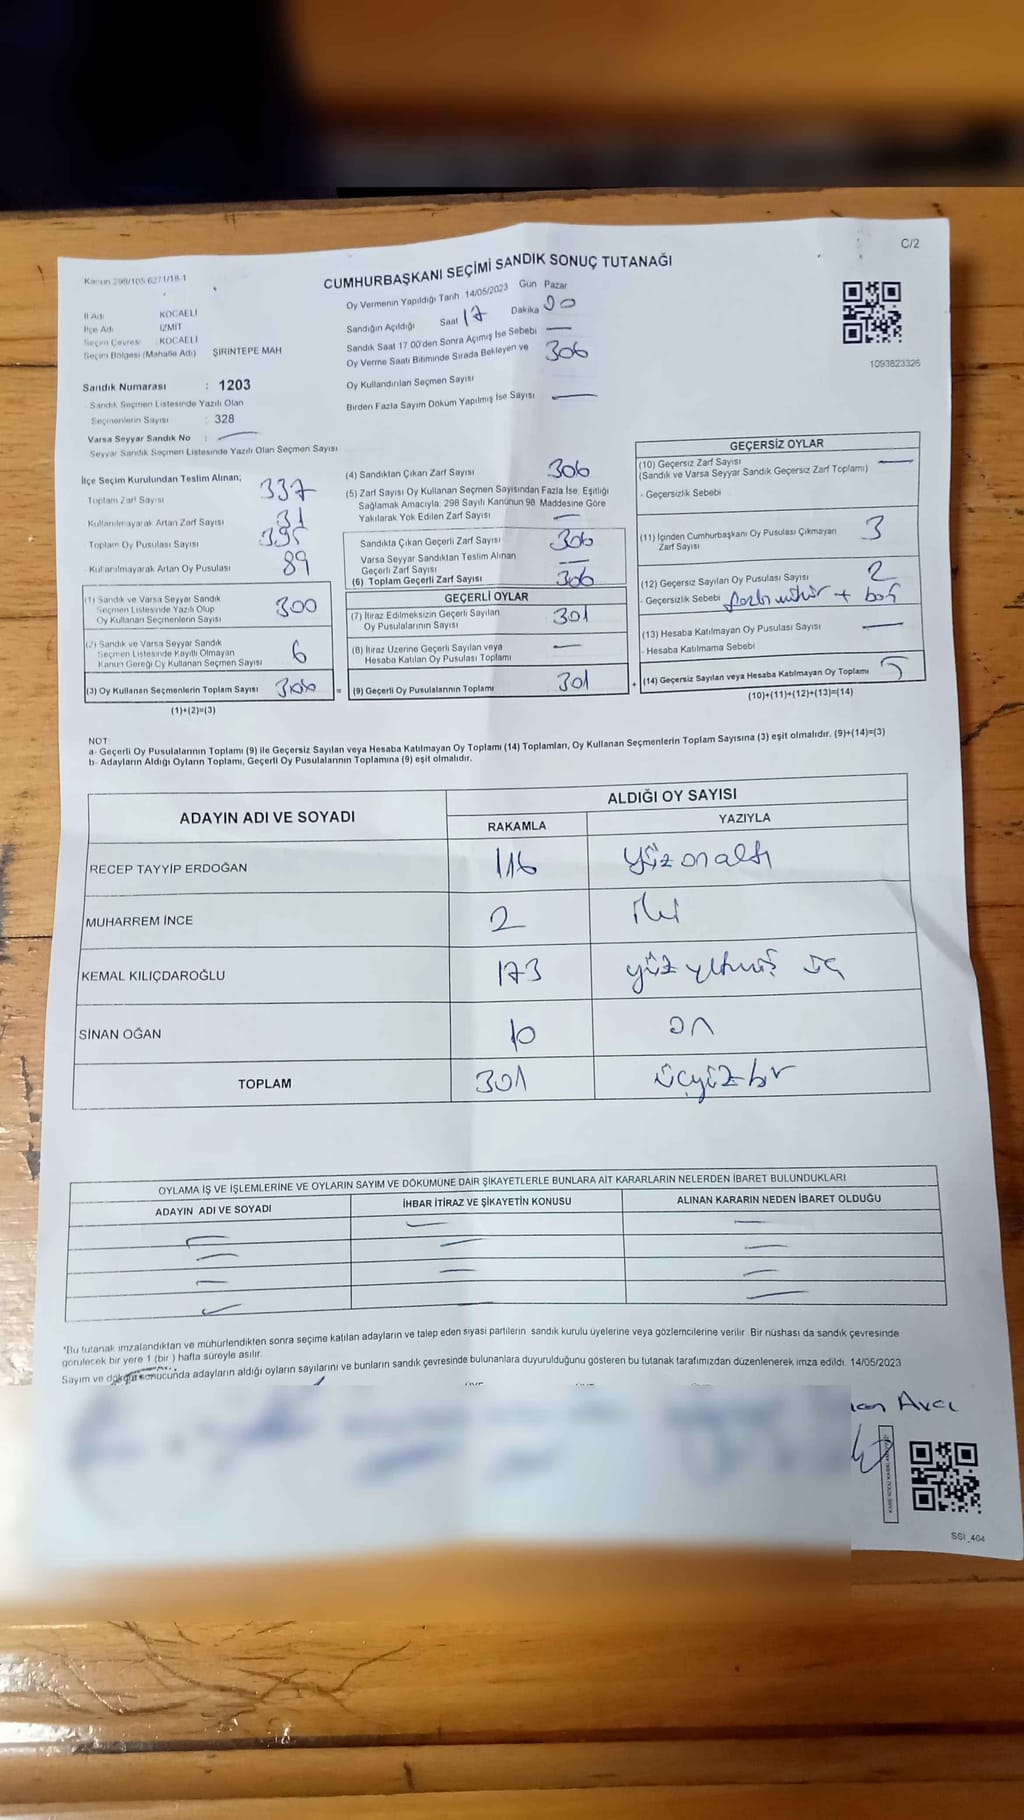 C/2
Kanun 298/105 6271/18-1
CUMHURBAŞKANI SEÇİMİ SANDIK SONUÇ TUTANAĞI
İl Adı : KOCAELİ
İlçe Adı : İZMİT
Seçim Çevresi : KOCAELİ
Seçim Bölgesi (Mahalle Adı) ŞİRİNTEPE MAH
Sandık Numarası : 1203
Sandık Seçmen Listesinde Yazılı Olan
Seçmenlerin Sayısı : 328
Varsa Seyyar Sandık No :
Seyyar Sandık Seçmen Listesinde Yazılı Olan Seçmen Sayısı
Oy Vermenin Yapıldığı Tarih 14/05/2023 Gün Pazar
Sandığın Açıldığı Saat 17 Dakika 00
Sandık Saat 17 00'den Sonra Açımış İse Sebebi —
Oy Verme Saati Bitiminde Sırada Bekleyen ve 306
Oy Kullandırılan Seçmen Sayısı
Birden Fazla Sayım Döküm Yapılmış İse Sayısı —
1093823326
İlçe Seçim Kurulundan Teslim Alınan;
Toplam Zarf Sayısı 337
Kullanılmayarak Artan Zarf Sayısı 31
Toplam Oy Pusulası Sayısı 395
Kullanılmayarak Artan Oy Pusulası 89
(1) Sandık ve Varsa Seyyar Sandık
Seçmen Listesinde Yazılı Olup
Oy Kullanan Seçmenlerin Sayısı 300
(2) Sandık ve Varsa Seyyar Sandık
Seçmen Listesinde Kayıtlı Olmayan
Kanun Gereği Oy Kullanan Seçmen Sayısı 6
(3) Oy Kullanan Seçmenlerin Toplam Sayısı 306 =
(1)+(2)=(3)
(4) Sandıktan Çıkan Zarf Sayısı 306
(5) Zarf Sayısı Oy Kullanan Seçmen Sayısından Fazla İse, Eşitliği
Sağlamak Amacıyla, 298 Sayılı Kanunun 98. Maddesine Göre
Yakılarak Yok Edilen Zarf Sayısı —
Sandıkta Çıkan Geçerli Zarf Sayısı 306
Varsa Seyyar Sandıktan Teslim Alınan
Geçerli Zarf Sayısı —
(6) Toplam Geçerli Zarf Sayısı 306
GEÇERLİ OYLAR
(7) İtiraz Edilmeksizin Geçerli Sayılan
Oy Pusulalarının Sayısı 301
(8) İtiraz Üzerine Geçerli Sayılan veya
Hesaba Katılan Oy Pusulası Toplamı —
(9) Geçerli Oy Pusulalarının Toplamı 301 +
GEÇERSİZ OYLAR
(10) Geçersiz Zarf Sayısı —
(Sandık ve Varsa Seyyar Sandık Geçersiz Zarf Toplamı)
- Geçersizlik Sebebi
(11) İçinden Cumhurbaşkanı Oy Pusulası Çıkmayan
Zarf Sayısı 3
(12) Geçersiz Sayılan Oy Pusulası Sayısı 2
- Geçersizlik Sebebi fazla mühür + boş
(13) Hesaba Katılmayan Oy Pusulası Sayısı —
- Hesaba Katılmama Sebebi
(14) Geçersiz Sayılan veya Hesaba Katılmayan Oy Toplamı 5
(10)+(11)+(12)+(13)=(14)
NOT:
a- Geçerli Oy Pusulalarının Toplamı (9) ile Geçersiz Sayılan veya Hesaba Katılmayan Oy Toplamı (14) Toplamları, Oy Kullanan Seçmenlerin Toplam Sayısına (3) eşit olmalıdır. (9)+(14)=(3)
b- Adayların Aldığı Oyların Toplamı, Geçerli Oy Pusulalarının Toplamına (9) eşit olmalıdır.
ADAYIN ADI VE SOYADI
ALDIĞI OY SAYISI
RAKAMLA YAZIYLA
RECEP TAYYİP ERDOĞAN 116 yüz on altı
MUHARREM İNCE 2 iki
KEMAL KILIÇDAROĞLU 173 yüz yetmiş üç
SİNAN OĞAN 10 on
TOPLAM 301 üçyüz bir
OYLAMA İŞ VE İŞLEMLERİNE VE OYLARIN SAYIM VE DÖKÜMÜNE DAİR ŞİKAYETLERLE BUNLARA AİT KARARLARIN NELERDEN İBARET BULUNDUKLARI
ADAYIN ADI VE SOYADI İHBAR İTİRAZ VE ŞİKAYETİN KONUSU ALINAN KARARIN NEDEN İBARET OLDUĞU
*Bu tutanak imzalandıktan ve mühürlendikten sonra seçime katılan adayların ve talep eden siyasi partilerin sandık kurulu üyelerine veya gözlemcilerine verilir. Bir nüshası da sandık çevresinde
görülecek bir yere 1 (bir ) hafta süreyle asılır.
Sayım ve döküm sonucunda adayların aldığı oyların sayılarını ve bunların sandık çevresinde bulunanlara duyurulduğunu gösteren bu tutanak tarafımızdan düzenlenerek imza edildi. 14/05/2023
Avcı
SSI_404